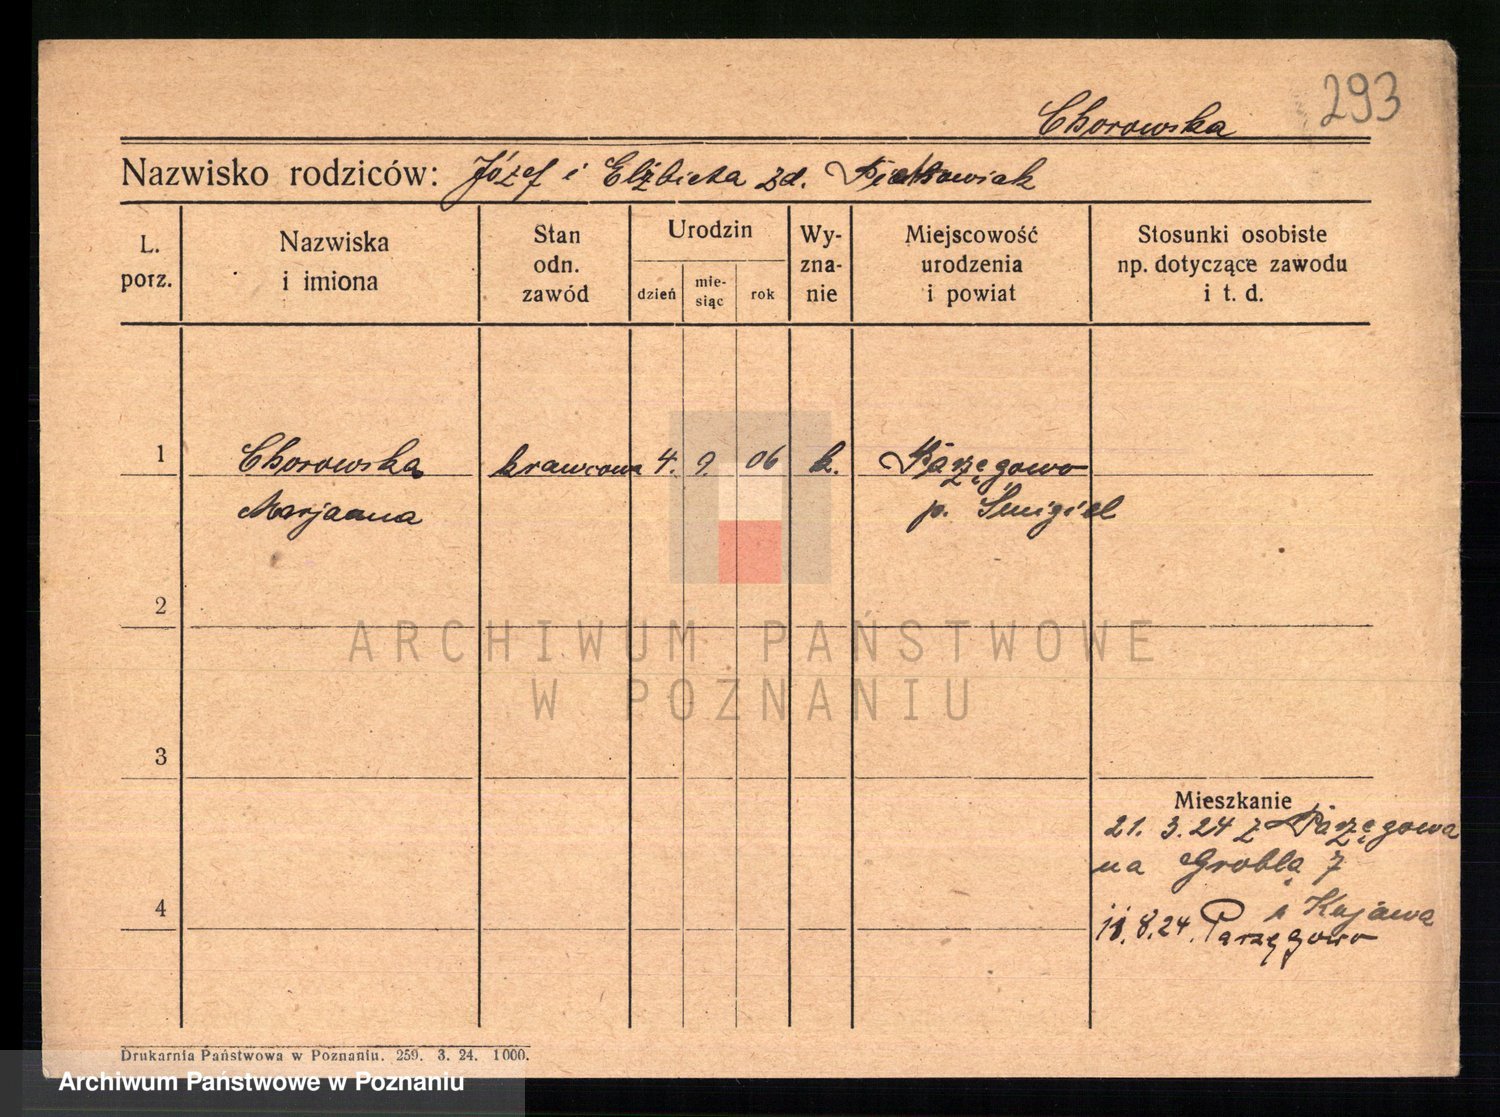 293
Chorowska
Nazwisko rodziców: Józef i Elżbieta zd. Piotrowiak
L. porz.
Nazwiska i imiona
Stan odn. zawód
Urodzin
dzień
mie-
siąc
rok
Wy-
zna-
nie
Miejscowość
urodzenia
i powiat
Stosunki osobiste
np. dotyczące zawodu
i t. d.
1 Chorowska krawcowa 4. 9. 06 k. Parzęgowo
Marjanna p. Śmigiel
2
3
Mieszkanie
21. 3. 24 z Parzęgowa
na Grobla 7
4
Kujawa
11. 8. 24. Parzęgowo
Drukarnia Państwowa w Poznaniu. 259. 3. 24. 1000.
ARCHIWUM PAŃSTWOWE
W POZNANIU
Archiwum Państwowe w Poznaniu